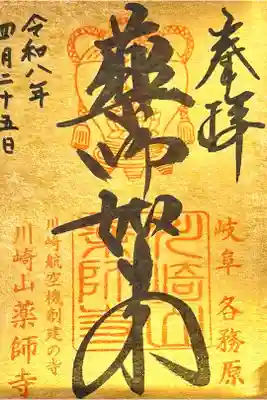 奉拝
岐阜 各務原
薬師如来
川崎山
薬師寺
川崎航空機創建の寺
川崎山薬師寺
令和八年
四月二十五日